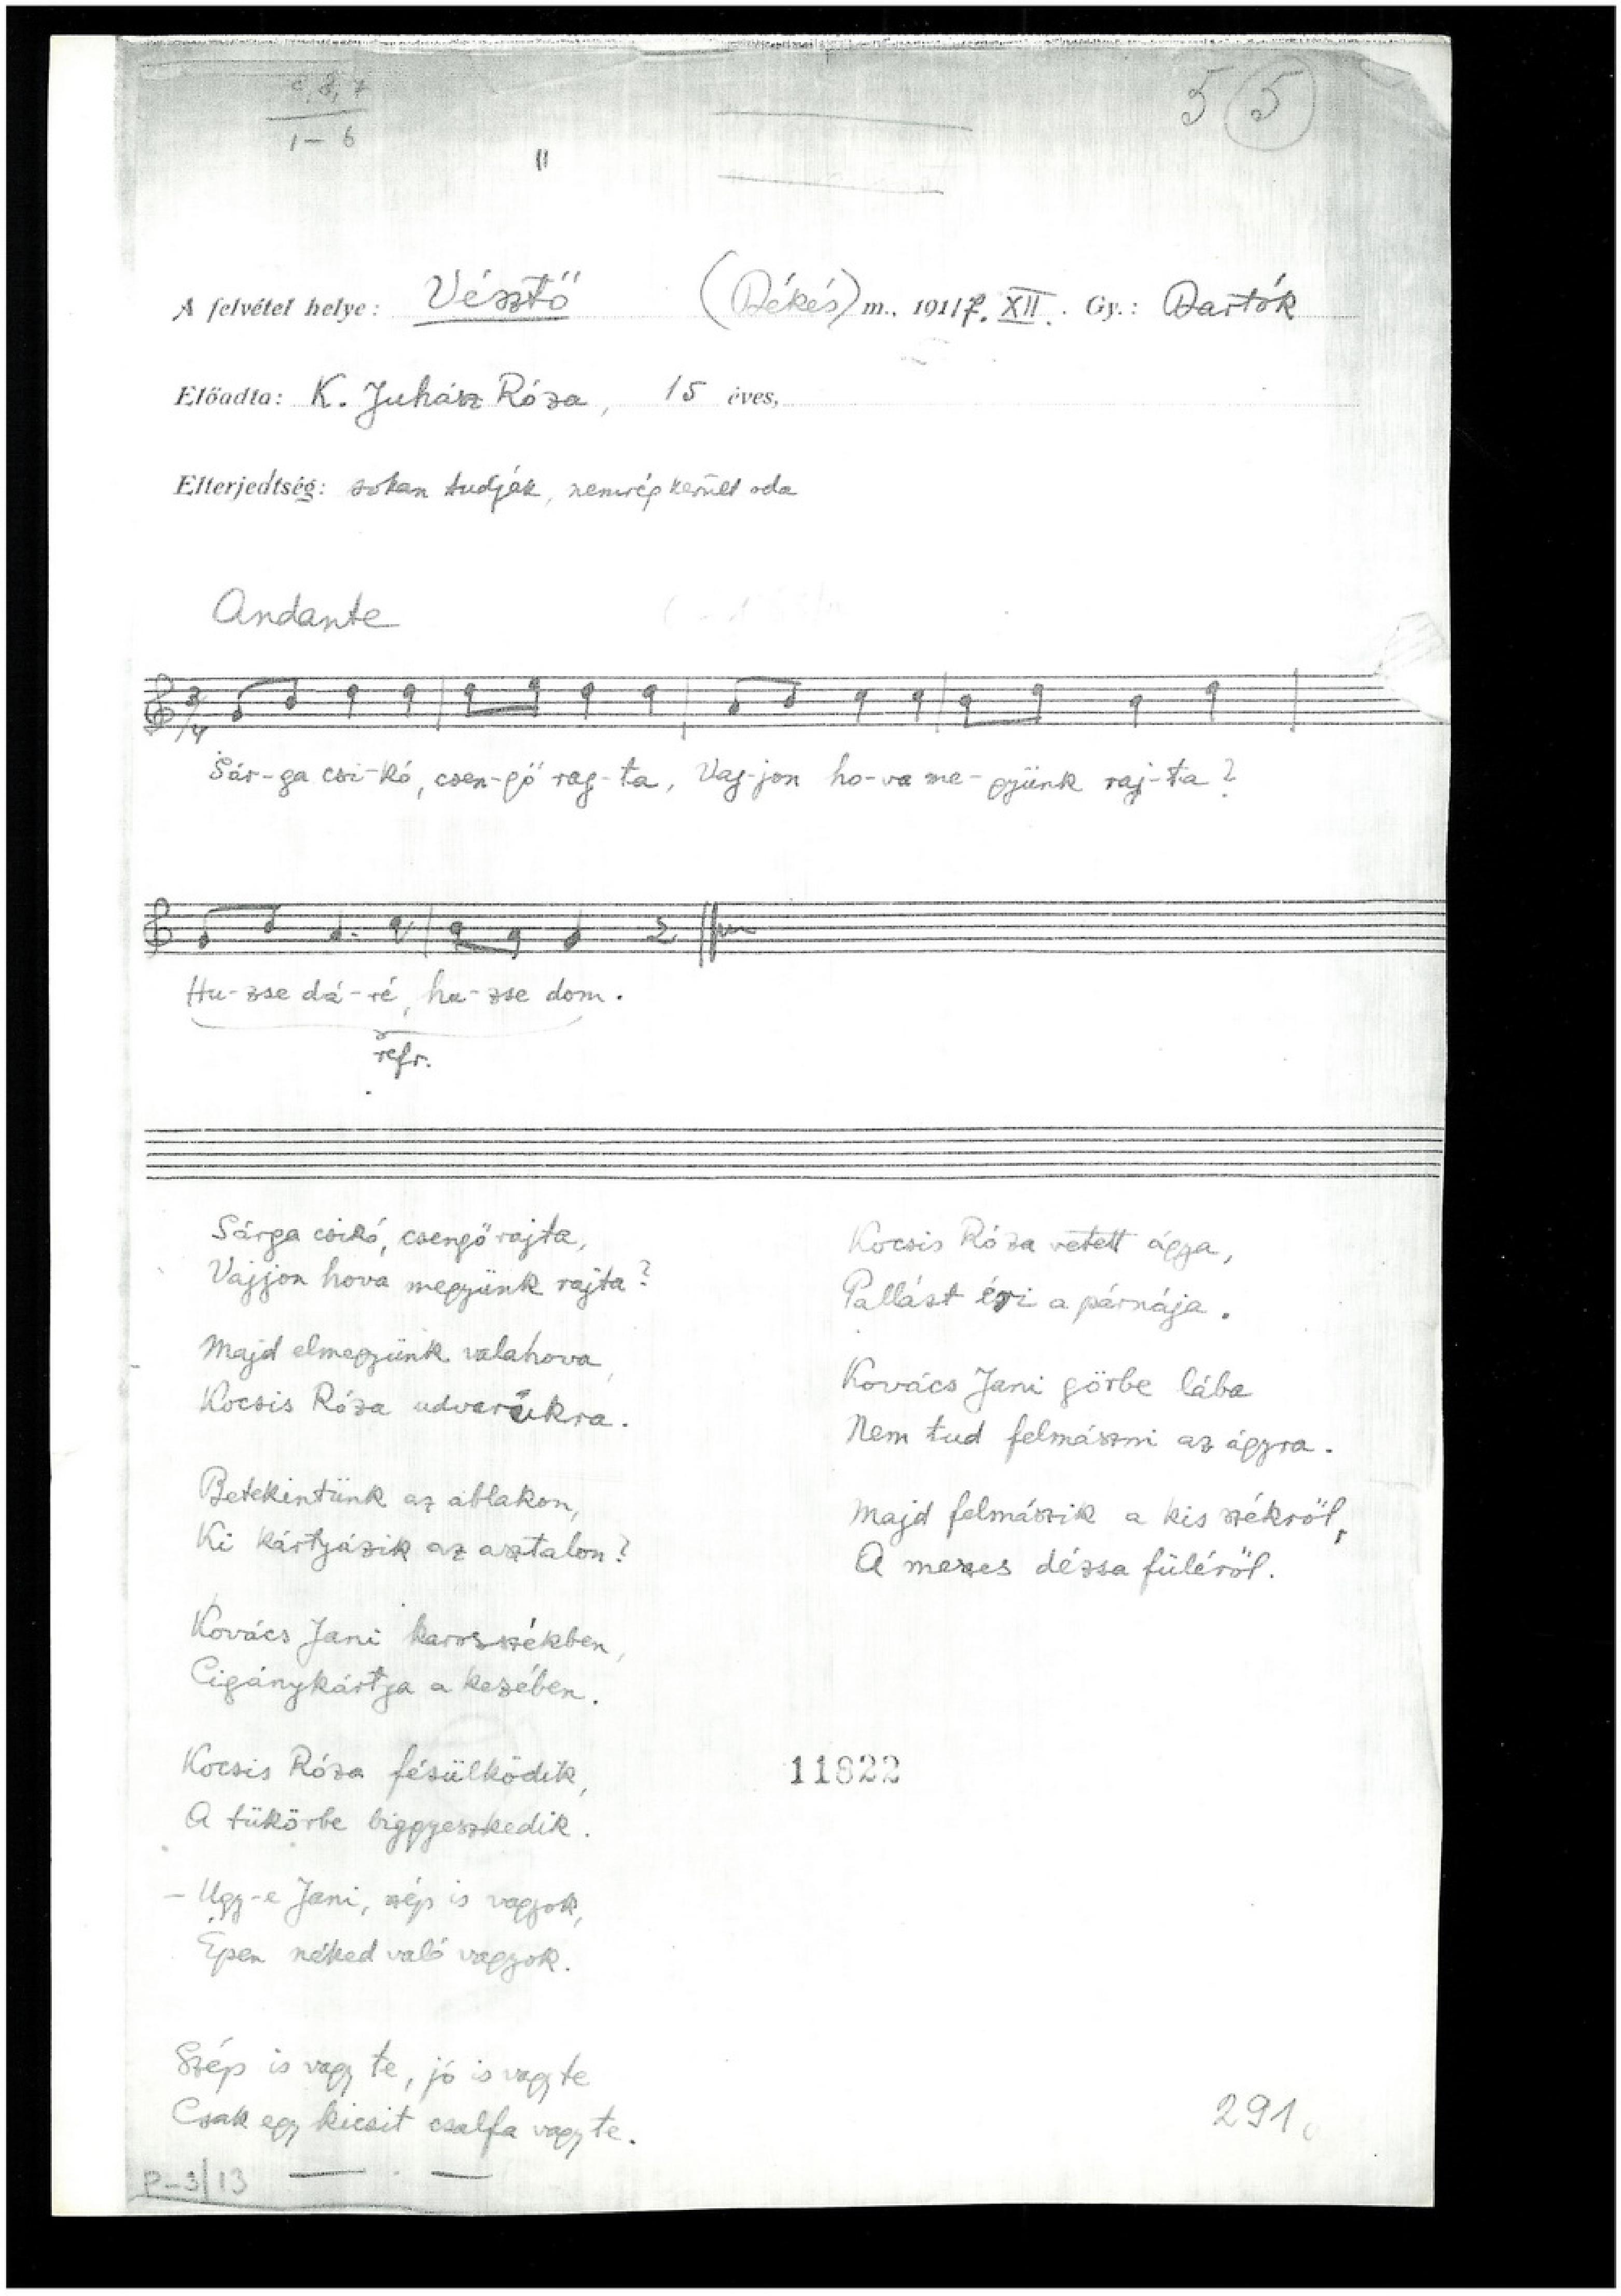 c, 8, 7
1 – 6
"
5 5
A felvétel helye: Vésztő (Békés) m., 1917. XII. Gy.: Bartók
Előadta: K. Juhász Róza, 15 éves,
Elterjedtség: sokan tudják, nemrég került oda
Andante
3/4
Sár-ga csi-kó, csen-gő raj-ta, Vaj-jon ho-va me-gyünk raj-ta?
Hu-zse dá-ré, hu-zse dom.
refr.
Sárga csikó, csengő rajta,
Vajjon hova megyünk rajta?
Majd elmegyünk valahova,
Kocsis Róza udvarukra.
Betekintünk az ablakon,
Ki kártyázik az asztalon?
Kovács Jani karosszékben,
Cigánykártya a kezében.
Kocsis Róza fésülködik,
A tükörbe biggyeszkedik.
– Ugy-e Jani, szép is vagyok,
Épen néked való vagyok.
Szép is vagy te, jó is vagy te
Csak egy kicsit csalfa vagy te.
Kocsis Róza vetett ágya,
Pallást éri a párnája.
Kovács Jani görbe lába
Nem tud felmászni az ágyra.
Majd felmászik a kis székről,
A mezes dézsa füléről.
11822
291.
P–3/13